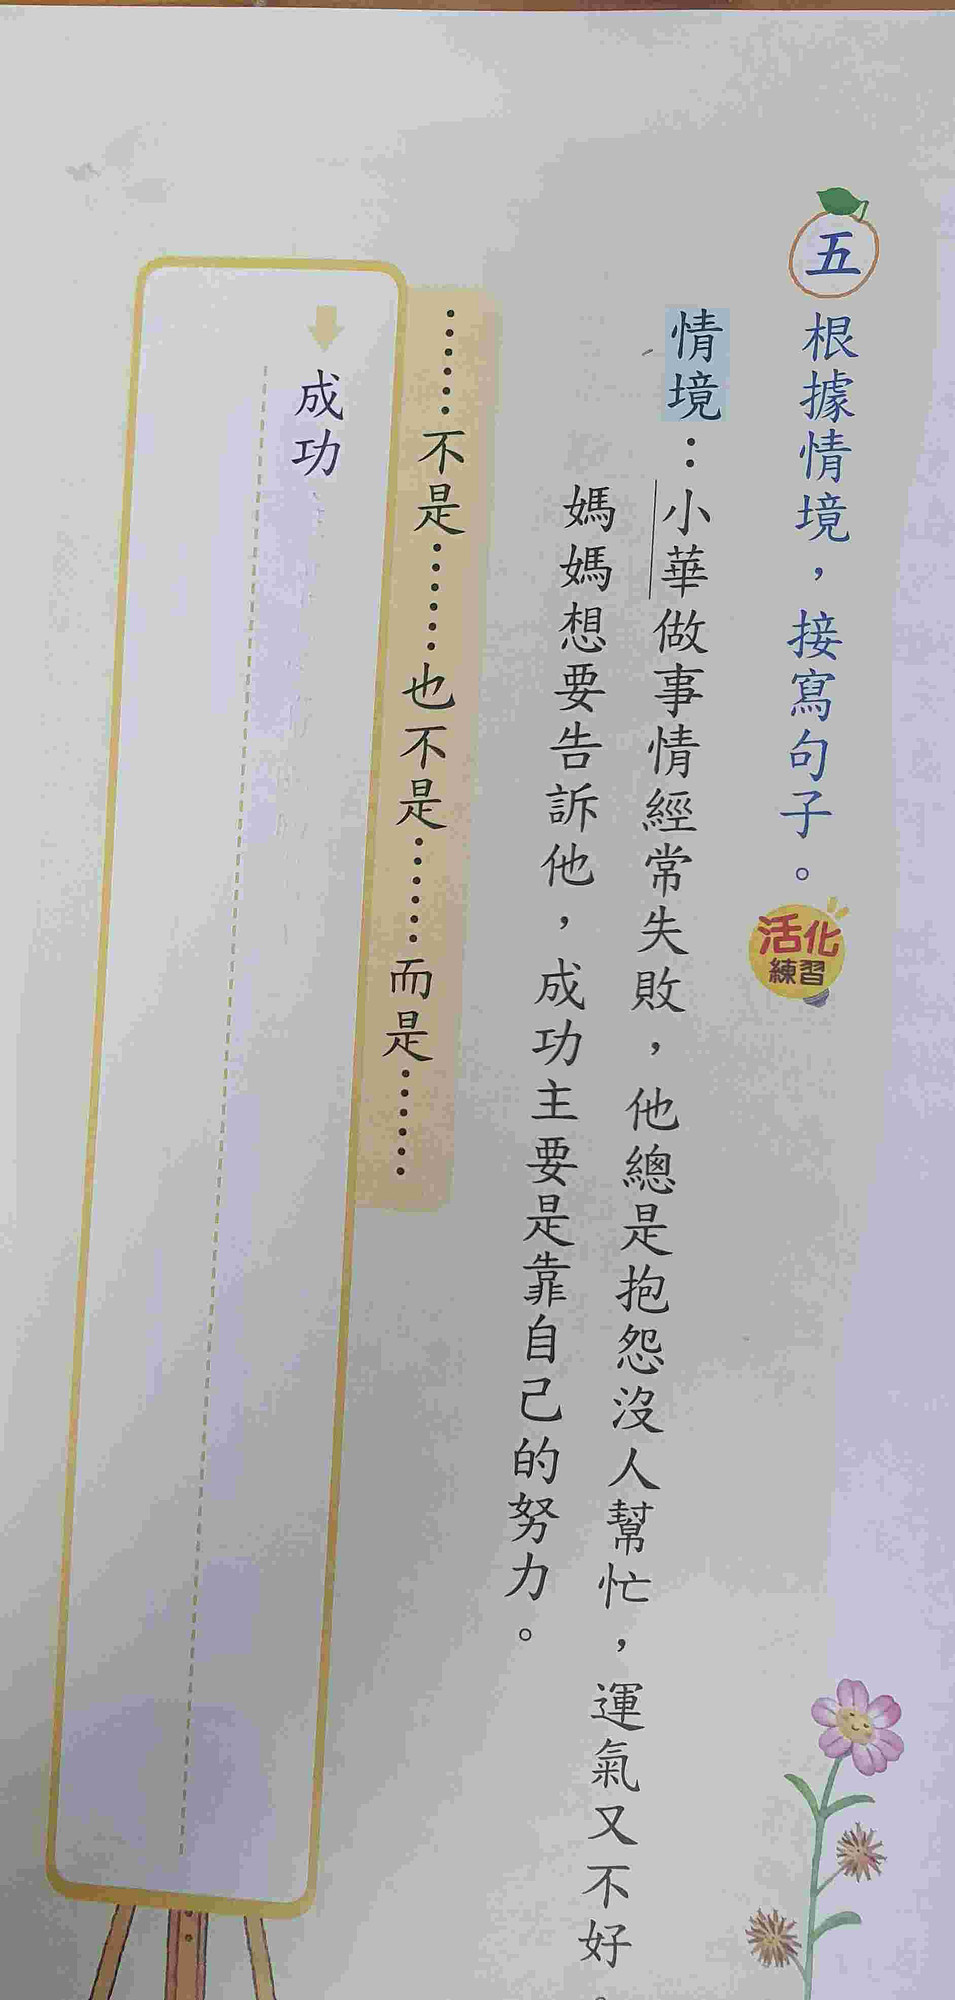 五
根據情境，接寫句子。
活化
練習
情境：小華做事情經常失敗，他總是抱怨沒人幫忙，運氣又不好。
媽媽想要告訴他，成功主要是靠自己的努力。
……不是……也不是……而是……
成功